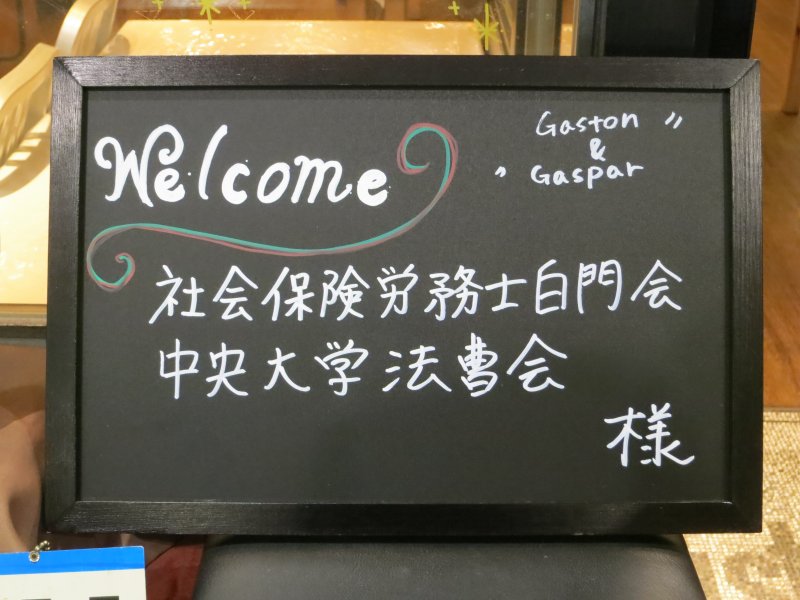 Welcome
Gaston 〃
&
〃 Gaspar
社会保険労務士白門会
中央大学法曹会
様